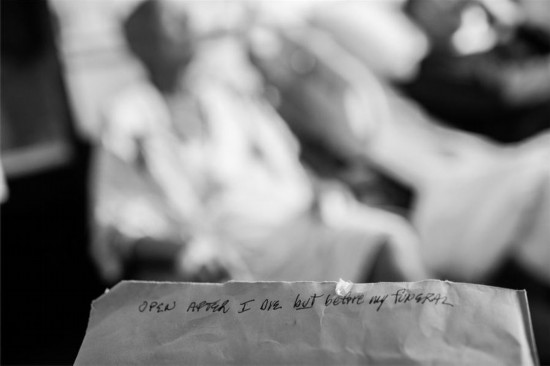 OPEN AFTER I DIE but before my FUNERAL